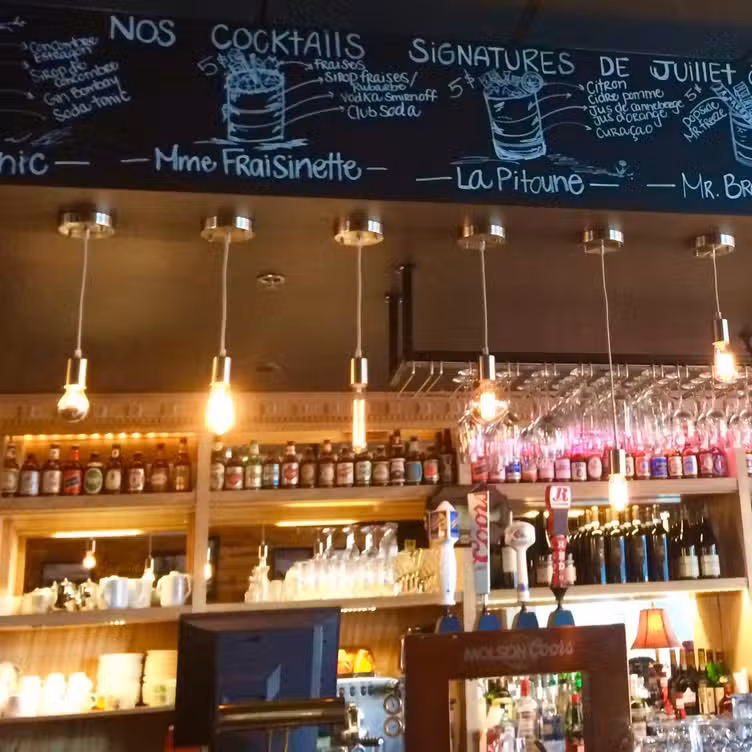 NOS COCKTAILS SIGNATURES DE JUILLET
Concombre
Estragon
Sirop de
concombre
Gin Bombay
Soda tonic
NIC
5$
FRAISES
SIROP FRAISES/
Rubarbe
Vodka SMIRNOFF
Club SODA
Mme FRAISINETTE
5$
Citron
Cidre pomme
Jus de canneberge
Jus d'orange
Curaçao
La Pitoune
5$
Popsicle
MR. Freeze
MR. BR
Coors
MOLSON Coors